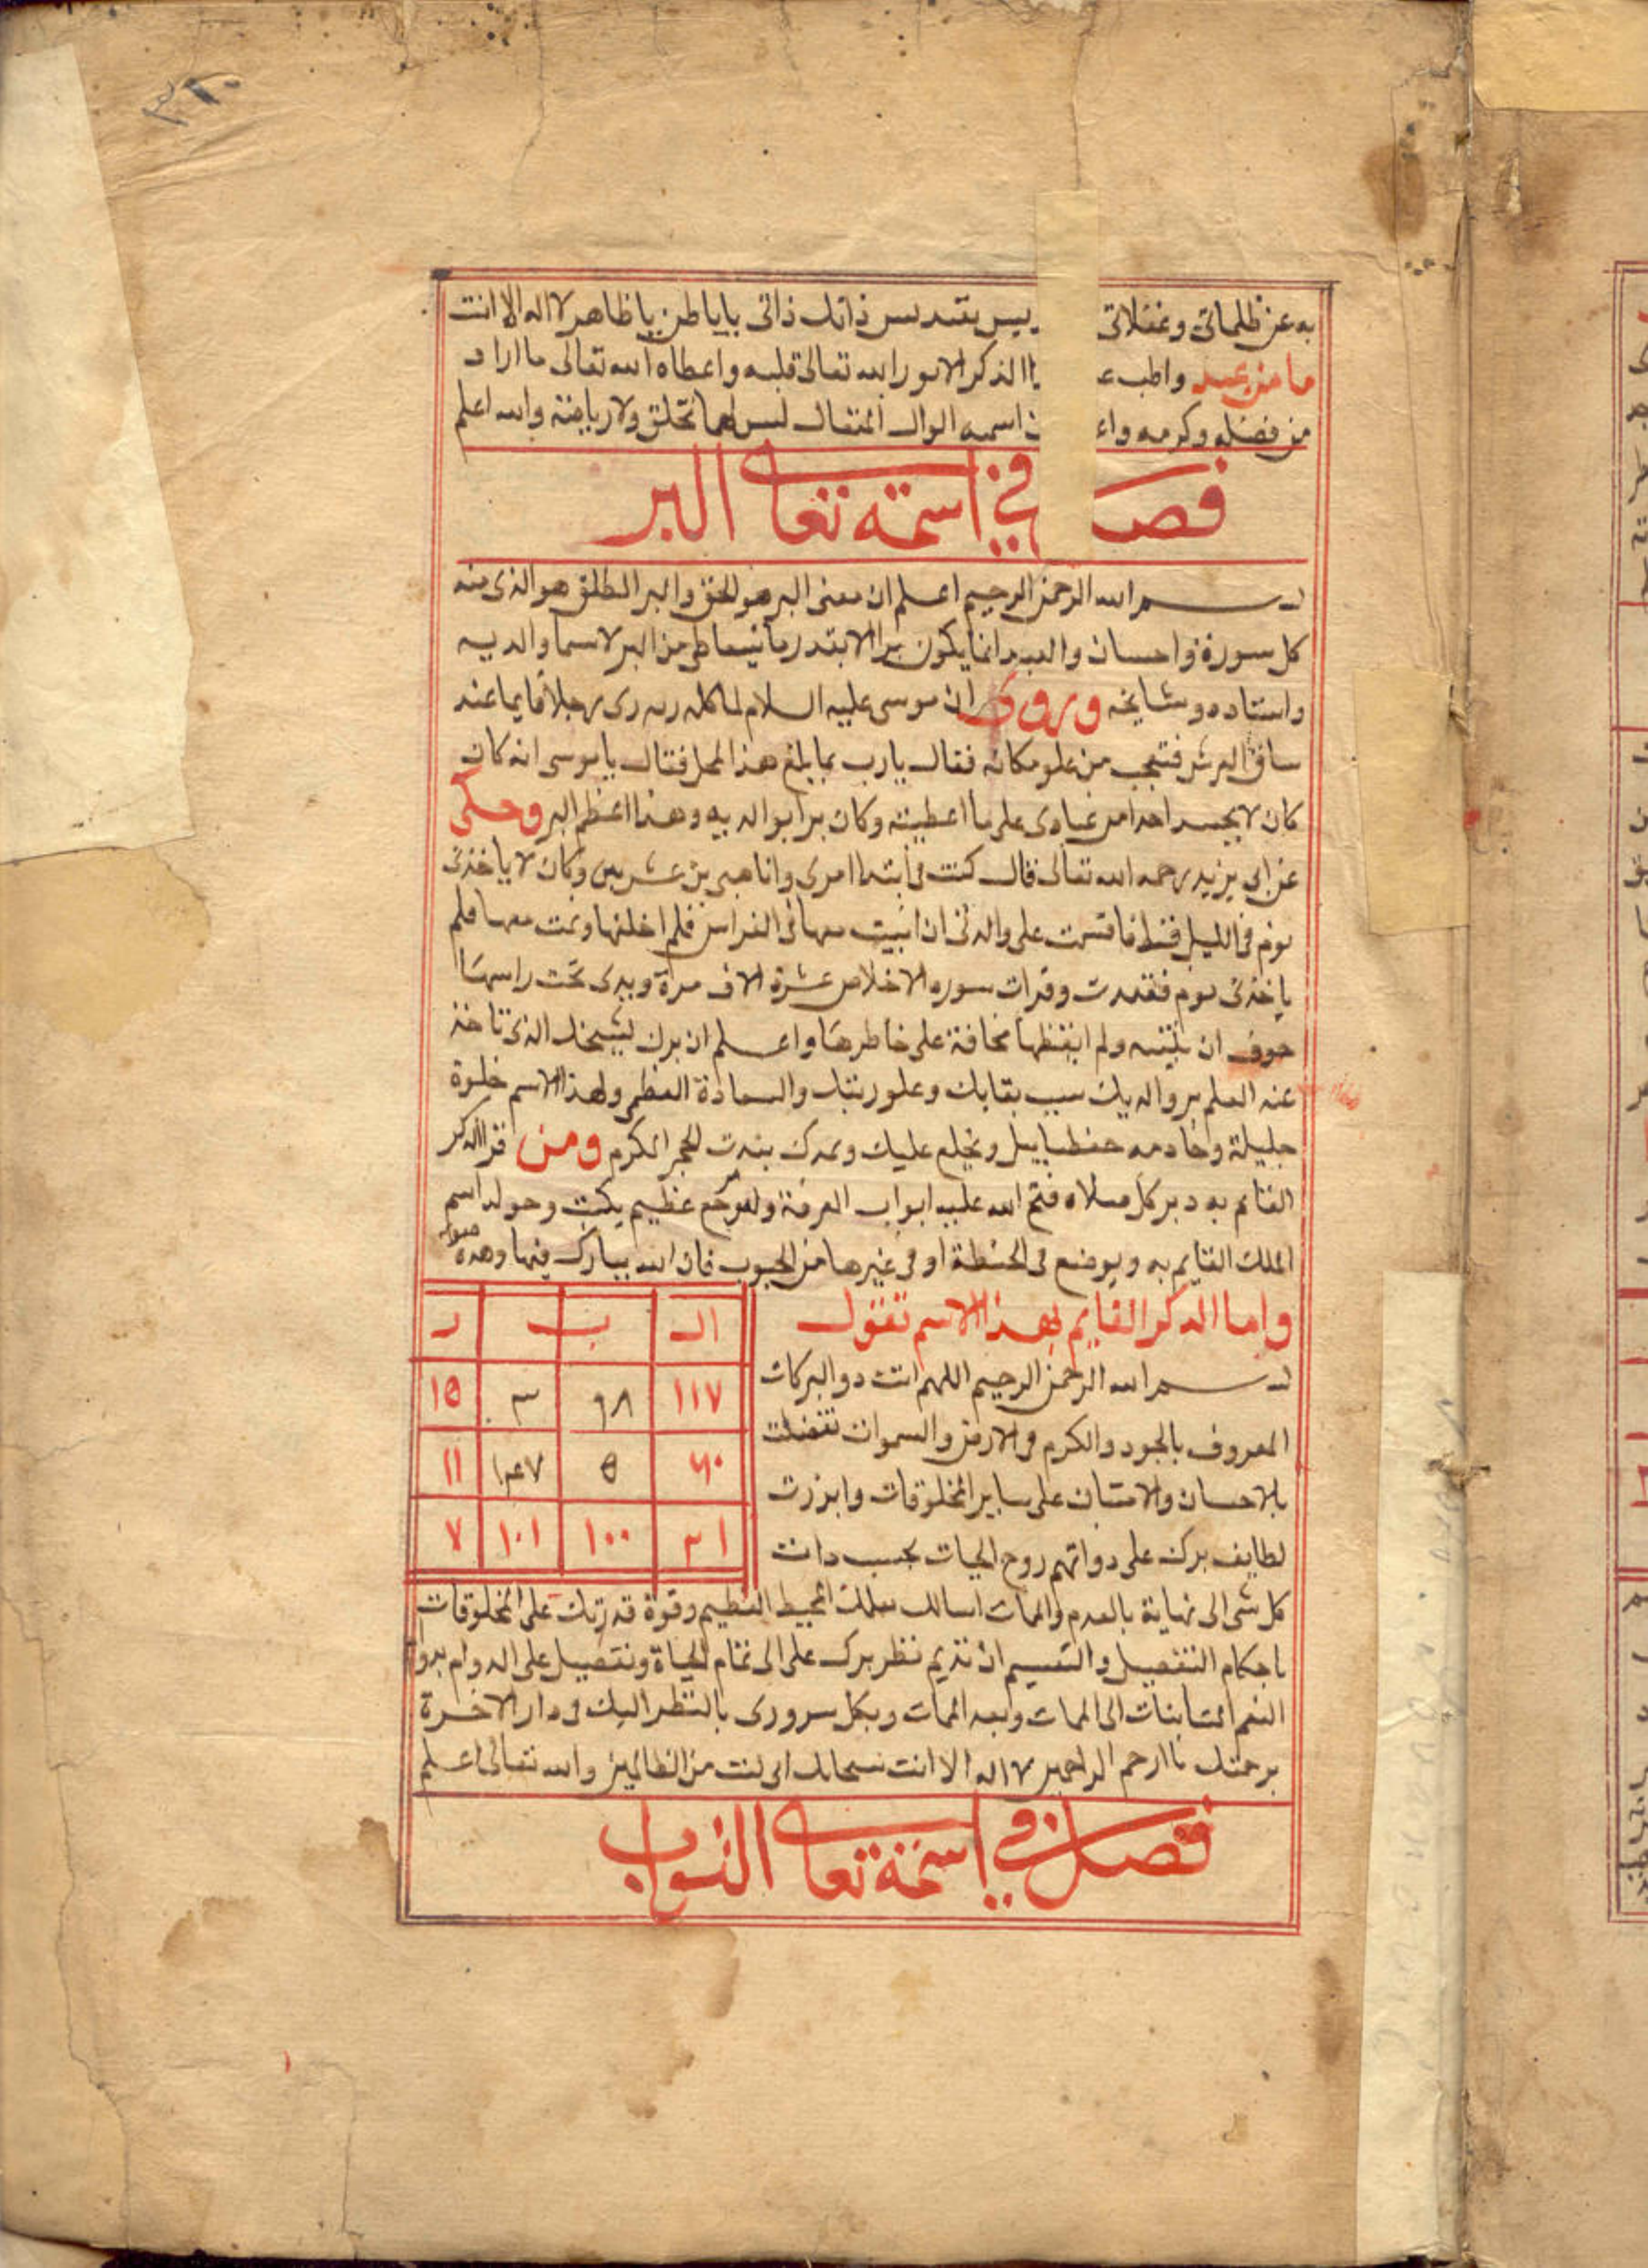 ٣٢٠
به عن ظلماتى وغفلاتى يس بتقديس ذاتك ذاتى ياباطن ياظاهر لا اله الا انت
ما من عبد واظب ع الذكر الا نور الله تعالى قلبه واعطاه الله تعالى ما اراد
من فضله وكرمه واع ن اسمه الوال المتعال ليس لهما تخلق ولا رياضة والله اعلم
فصل فى اسمه تعالى البر
بسم الله الرحمن الرحيم اعلم ان معنى البر هو الحق والبر المطلق هو الذى منه
كل سورة واحسان والعبد انما يكون برا الا بقدر ما يتعاطى من البر لاسيما والديه
واستاده ومشايخه وروى ان موسى عليه السلام لما كلمه ربه رى رجلا قايما عند
ساق العرش فتعجب من علو مكانه فقال يارب بما بلغ هذا المحل فقال ياموسى انه كان
كان لا يحسد احدا من عبادى على ما اعطيته وكان برا بوالديه وهذا اعظم البر وحكى
عن ابى يزيد رحمه الله تعالى قال كنت فى ابتدا امرى وانا صبى بن عشرين وكان لا ياخذنى
نوم فى الليل قط فاقسمت على والدتى ان ابيت معها فى الفراش فلم اخلفها ونمت معها فلم
ياخذنى نوم فقعدت وقرات سوره الاخلاص عشرة الاف مرة ويدى تحت راسها
خوف ان تنتبه ولم ايقظها مخافة على خاطرها واعلم ان برك لشيخك الذى تاخذ
عنه العلم بر والديك سبب بقايك وعلو رتبتك والسعادة العظمى ولهذا الاسم خلوة
جليلة وخادمه حفطياييل ويخلع عليك ويمدك بندت الحجر المكرم ومن قرا الذكر
القايم به دبر كل صلاه فتح الله عليه ابواب المعرفة وله مربع عظيم يكتب وحوله اسم
الملك القايم به ويوضع فى الحنطة او فى غيرها من الحبوب فان الله يبارك فيها وهذه صورته
واما الذكر القايم بهذا الاسم تقول
بسم الله الرحمن الرحيم اللهم انت ذو البركات
المعروف بالجود والكرم فى الارض والسموات تفضلت
بالاحسان والامتنان على ساير المخلوقات وابرزت
لطايف برك على ذواتهم روح الحيات بحسب دانت
ال ب ر
١١٧ ٦٨ ٣ ١٥
٦٠ ٥ ١٤٧ ١١
٣١ ١٠٠ ١٠١ ٧
كل شى الى نهاية بالعدم والممات اسالك بعلمك المحيط العظيم وقوة قدرتك على المخلوقات
باحكام التفصيل والتقسيم ان تديم نظر برك على الى تمام الحياة وتتفضل على الدوام بدوام
النعم الى الممات وبعد الممات وبكل سرورى بالنظر اليك فى دار الاخرة
برحمتك ياارحم الراحمين لا اله الا انت سبحانك انى كنت من الظالمين والله تعالى اعلم
فصل فى اسمه تعالى التواب